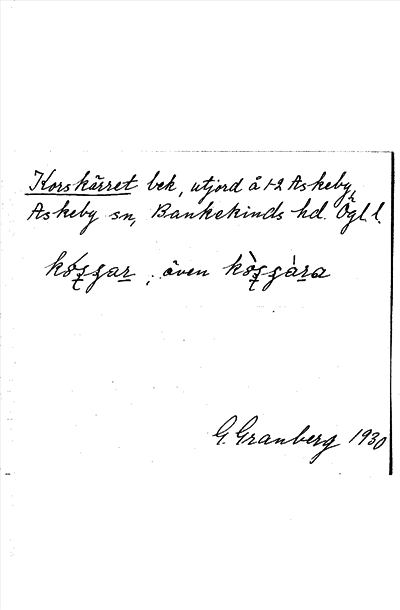 Korskärret bek, utjord å 1-2 Askeby,
Askeby sn, Bankekinds hd. Ögl. l.
även
G. Granberg 1930